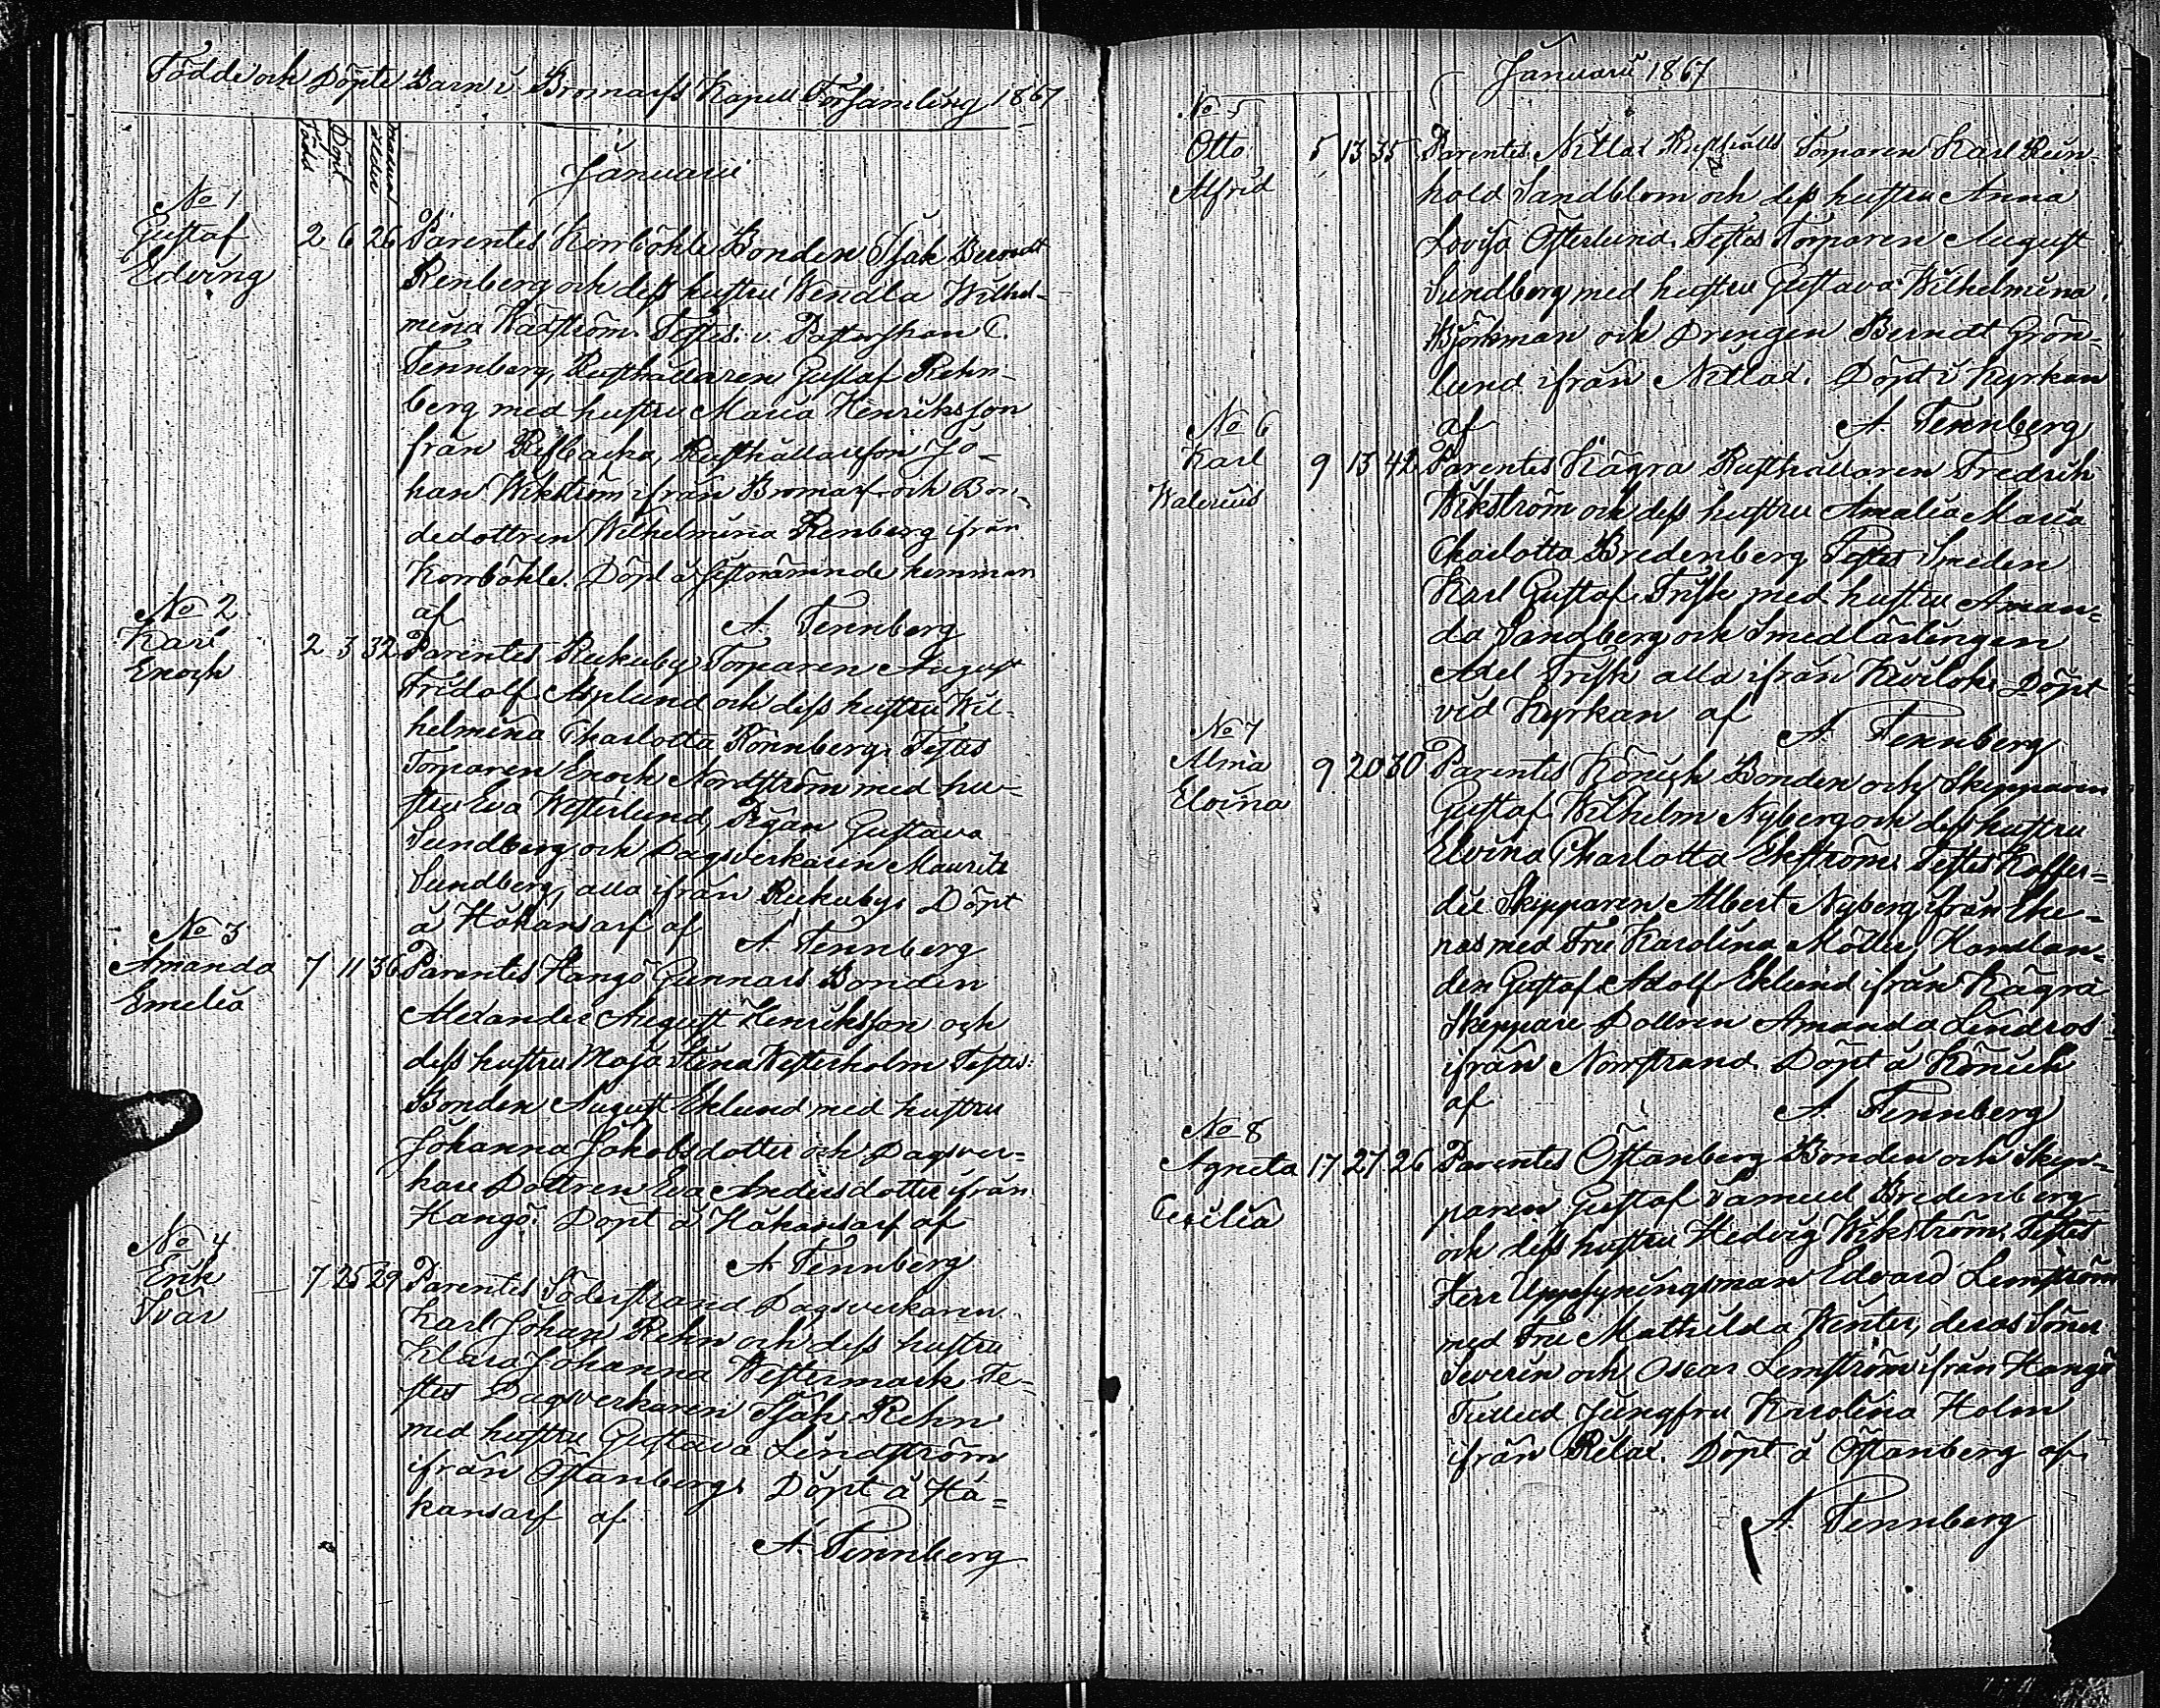 Födde och Döpte Barn i Bromarfs Kapell Församling 1867
Född
Döpt
Modrens ålder
Januari
No 1
Gustaf
Edving
2 6 26 Parentes Korrböhle Bonden Isak Berndt
Renberg och dess hustru Wendla Wilhel-
mina Wadström. Testes: v. Pastorskan C.
Tennberg, Rusthållaren Gustaf Rehn-
berg med hustru Maria Henriksson
från Refbacka, Rusthållaresson Jo-
han Wikström ifrån Bromarf och Bon-
dedottren Wilhelmina Renberg ifrån
Korrböhle. Döpt å sistnämnde hemman
af
A. Tennberg
No 2
Karl
Enoch
2 3 32 Parentes Rukuby Torparen August
Fridolf Asplund och dess hustru Wil-
helmina Charlotta Rönnberg. Testes
Torparen Enoch Nordström med hu-
stru Eva Westerlund, Pigan Gustava
Sundberg och Dagsverkaren Maurits
Sundberg, alla ifrån Rukuby. Döpt
å Håkansarf af
A. Tennberg
No 3
Amanda
Emelia
7 11 36 Parentes Hangö Gunnars Bonden
Alexander August Henriksson och
dess hustru Maja Stina Westerholm Testes:
Bonden August Eklund med hustru
Johanna Jakobsdotter och Dagsver-
kare Dottren Eva Andersdotter ifrån
Hangö. Döpt å Håkansarf af
A. Tennberg
No 4
Erik
Ivar
7 25 29 Parentes Söderstrand Dagsverkaren
Karl Johan Rehn och dess hustru
Klara Johanna Westermark Te-
stes Dagsverkaren Isak Rehn
med hustru Gustava Lindström
ifrån Östanberg. Döpt å Hå-
kansarf af
A. Tennberg
Januari 1867
No 5
Otto
Alfrid
5 13 35 Parentes Nitlax Rusthålls Torparen Karl Rein-
hold Sandblom och dess hustru Anna
Lovisa Österlund. Testes Torparen August
Sundberg med hustru Gustava Wilhelmina
Björkman och Drengen Berndt Grön-
lund ifrån Nitlax. Döpt i Kyrkan
af
A. Tennberg
No 6
Karl
Walerius
9 13 42 Parentes Kägra Rusthållaren Fredrik
Wikström och dess hustru Amalia Maria
Charlotta Bredenberg Testes Smeden
Karl Gustaf Frisk med hustru Aman-
da Sandberg och Smedlärlingen
Axel Frisk alla ifrån Kiviloks Döpt
vid Kyrkan af
A. Tennberg
No 7
Alma
Elvina
9 20 30 Parentes Könick Bonden och Skepparen
Gustaf Wilhelm Nyberg och dess hustru
Elvina Charlotta Ekström. Testes Koffer-
die Skepparen Albert Nyberg ifrån Eke-
näs med Fru Karolina Möller, Handlan-
den Gustaf Adolf Eklund ifrån Kägra
Skeppare Dottren Amanda Lindroos
ifrån Norrstrand. Döpt å Könick
af
A. Tennberg
No 8
Agneta
Cecilia
17 27 26 Parentes Östanberg Bonden och Skep-
paren Gustaf Samuel Bredenberg
och dess hustru Hedvig Wikström. Testes
Herr Uppsyningsman Edvard Lemström
med Fru Mathilda Winter, deras Söner
Severin och Oscar Lemström ifrån Hangö
Tullud Jungfru Karolina Holm
ifrån Rilax. Döpt å Östanberg af
A. Tennberg